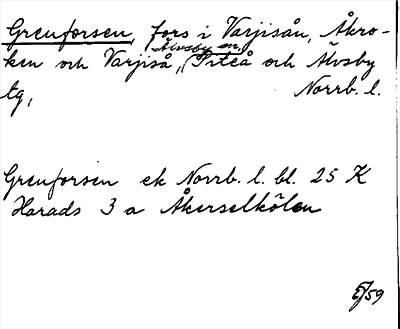 Grenforsen, fors i Varjisån, Åkro-
ken och Varjiså, Älvsby sn, Piteå och Älvsby
tg, Norrb. l.
Grenforsen ek Norrb. l. bl. 25 K
Harads 3 a Åkerselkölen
/59